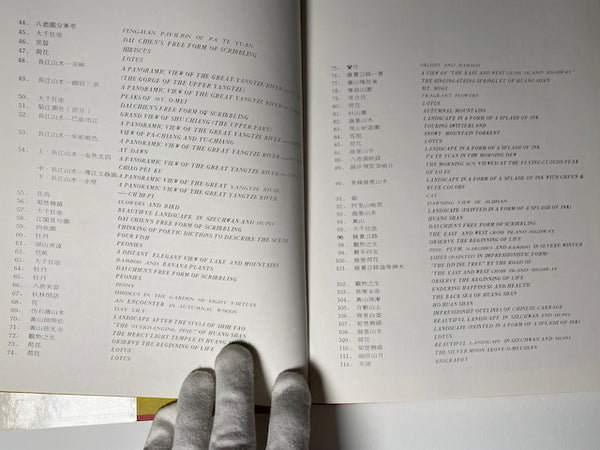 44. 八德園分寒亭
45. 大千狂塗
46. 芙蓉
47. 荷花
48. 長江山水—巫峽
49. 長江山水—峨眉三頂
50. 大千狂塗
51. 蜀江圖卷（部分）
52. 長江山水—巴渝曲江
53. 長江山水—吳蜀曉色
54. 上、長江山水—
中、長江山水—
下、長江山水—赤壁
55. 花鳥
56. 蜀楚勝蹟
57. 大千狂塗
58. 江閣賞句圖
59. 四魚圖
60. 牡丹
61. 湖山清遠
62. 芭蕉
63. 大千狂塗
64. 牡丹
65. 牡丹
66. 八德芙蓉
67. 秋林閒話
68. 花
69. 仿石濤山水
70. 黃山倒掛松
71. 黃山慈光寺
72. 觀物之生
73. 荷花
74. 荷花
FENG-HAN PAVILION OF PA TE YUAN.
DAI CHIEN'S FREE FORM OF SCRIBBLING
HIBISCUS
LOTUS
A PANORAMIC VIEW OF THE GREAT YANGTZE RIVER—
(THE GORGE OF THE UPPER YANGTZE)
A PANORAMIC VIEW OF THE GREAT YANGTZE RIVER—
PEAKS OF MT. O-MEI
DAI CHIEN'S FREE FORM OF SCRIBBLING
GRAND VIEW OF SHU CHIANG (THE UPPER PART)
A PANORAMIC VIEW OF THE GREAT YANGTZE RIVER—
VIEW OF PA-CHIANG AND YU-CHIANG
A PANORAMIC VIEW OF THE GREAT YANGTZE RIVER
AT DAWN
A PANORAMIC VIEW OF THE GREAT YANGTZE RIVER
CHIAO PEI KU
A PANORAMIC VIEW OF THE GREAT YANGTZE RIVER
A PANORAMIC VIEW OF THE GREAT YANGTZE RIVER
CH'IH-PI
FLOWERS AND BIRD
BEAUTIFUL LANDSCAPE IN SZECHWAN AND HUPEI
DAI CHIEN'S FREE FORM OF SCRIBBLING
THINKING OF POETIC DICTIONS TO DESCRIBE THE SCENE
FOUR-FISH
PEONIES
A DISTANT ELEGANT VIEW OF LAKE AND MOUNTAINS
BAMBOO AND BANANA PLANTS
DAI CHIEN'S FREE FORM OF SCRIBBLING
PEONIES
PEONY
HIBISCUS IN THE GARDEN OF EIGHT VIRTUES
AN ENCOUNTER IN AUTUMNAL WOODS
DAY LILY
LANDSCAPE AFTER THE STYLE OF SHIH TAO
"THE OVERHANGING PINE" OF HUANG SHAN
THE MERCY LIGHT TEMPLE IN HUANG SHAN
OBSERVE THE BEGINNING OF LIFE
LOTUS
LOTUS
75. 蘭竹
76. 橫貫公路一景
77. 黃山鳴弦泉
78. 摩詰山園
79. 荷分花
80. 荷花
81. 秋山圖
82. 潑墨山水
83. 瑞士紀遊圖
84. 雪澗
85. 荷花
86. 潑墨山水
88. 八德園曉露
90. 青綠潑墨山水
91. 貓
92. 阿里山曉望
93. 潑墨山水
94. 黃山
95. 大千狂塗
96. 橫貫公路
98. 觀物之生
99. 歲寒四友
100. 潑墨荷花
101. 橫貫公路道旁神木
102. 觀物之生
103. 長樂永康
104. 黃山後澥
105. 合歡山上
106. 寫意白菜
107. 蜀楚勝蹟
108. 潑墨山水
109. 荷花
110. 荷花
111. 蜀楚勝蹟
113. 峨眉山月
114. 年譜
ORCHID AND BAMBOO
A VIEW OF "THE EAST AND WEST CROSS ISLAND HIGHWAY"
THE SINGING-STRING SPRINGLET OF HUANG SHAN
MT. MOGI
FRAGRANT FLOWERS
LOTUS
AUTUMNAL MOUNTAINS
LANDSCAPE IN A FORM OF A SPLASH OF INK
TOURING SWITZERLAND
SNOWY MOUNTAIN TORRENT
LOTUS
LANDSCAPE IN A FORM OF A SPLASH OF INK
PA TE YUAN IN THE MORNING DEW
THE MORNING SUN VIEWED AT THE FLYING-CLOUDS PEAK
OF LO FU
LANDSCAPE IN A FORM OF A SPLASH OF INK WITH GREEN &
BLUE COLORS
CAT
DAWNING VIEW OF ALISHAN
LANDSCAPE (PAINTED IN A FORM OF A SPLASH OF INK)
HUANG SHAN
DAI CHIEN'S FREE FORM OF SCRIBBLING
THE EAST AND WEST CROSS ISLAND HIGHWAY
OBSERVE THE BEGINNING OF LIFE
PINE, PLUM, NARCISSUS AND BAMBOO IN SEVERE WINTER
LOTUS (PAINTED IN IMPRESSIONISTIC FORM)
"THE DIVINE TREE" BY THE ROAD OF
"THE EAST AND WEST CROSS ISLAND HIGHWAY"
OBSERVE THE BEGINNING OF LIFE
ENDURING HAPPINESS AND HEALTH
THE BACK SEA OF HUANG SHAN
HO HUAN SHAN
IMPRESSIONIST OUTLINES OF CHINESE CABBAGE
BEAUTIFUL LANDSCAPE IN SZECHWAN AND HUPEI
LANDSCAPE (PAINTED IN A FORM OF A SPLASH OF INK)
LOTUS
LOTUS
BEAUTIFUL LANDSCAPE IN SZECHWAN AND HUPEI
THE SILVER MOON ABOVE O-MEI SHAN
BIOGRAPHY